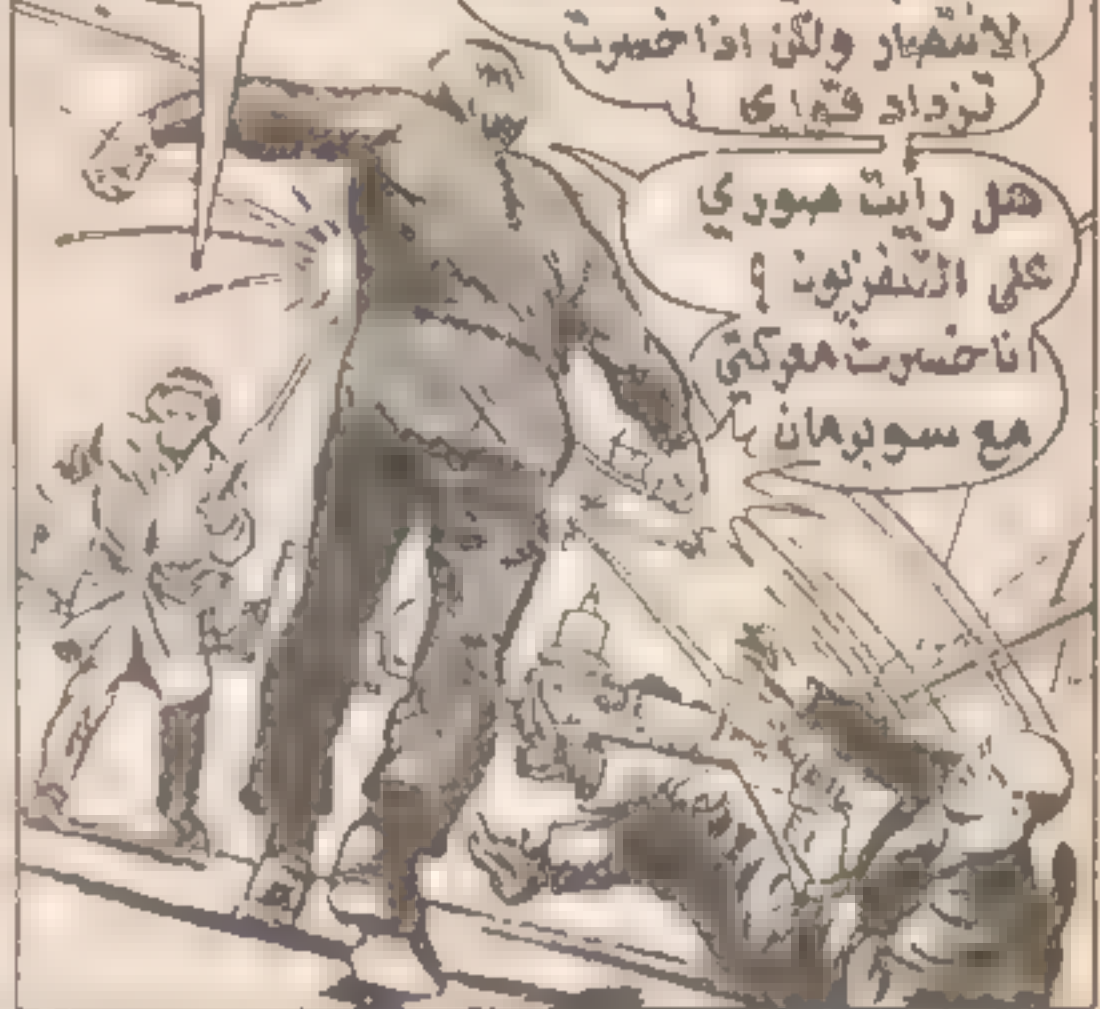 الانتصار ولكن اذا خسرت
تزداد قواي !
هل رايت صوري
على التلفزيون ؟
انا خسرت معركتي
مع سوبرمان يا